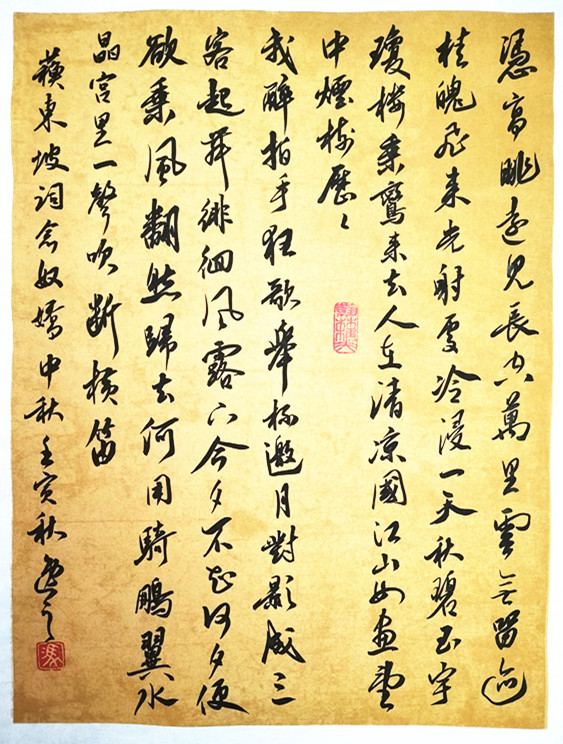 憑高眺遠見長空萬里雲無留迹
桂魄飛來光射處冷浸一天秋碧玉宇
瓊樓乘鸞來去人在清涼國江山如畫望
中煙樹歷〻
我醉拍手狂歌舉杯邀月對影成三
客起舞徘徊風露下今夕不知何夕便
欲乘風翻然歸去何用騎鵬翼水
晶宮里一聲吹斷橫笛
蘇東坡詞念奴嬌中秋壬寅秋